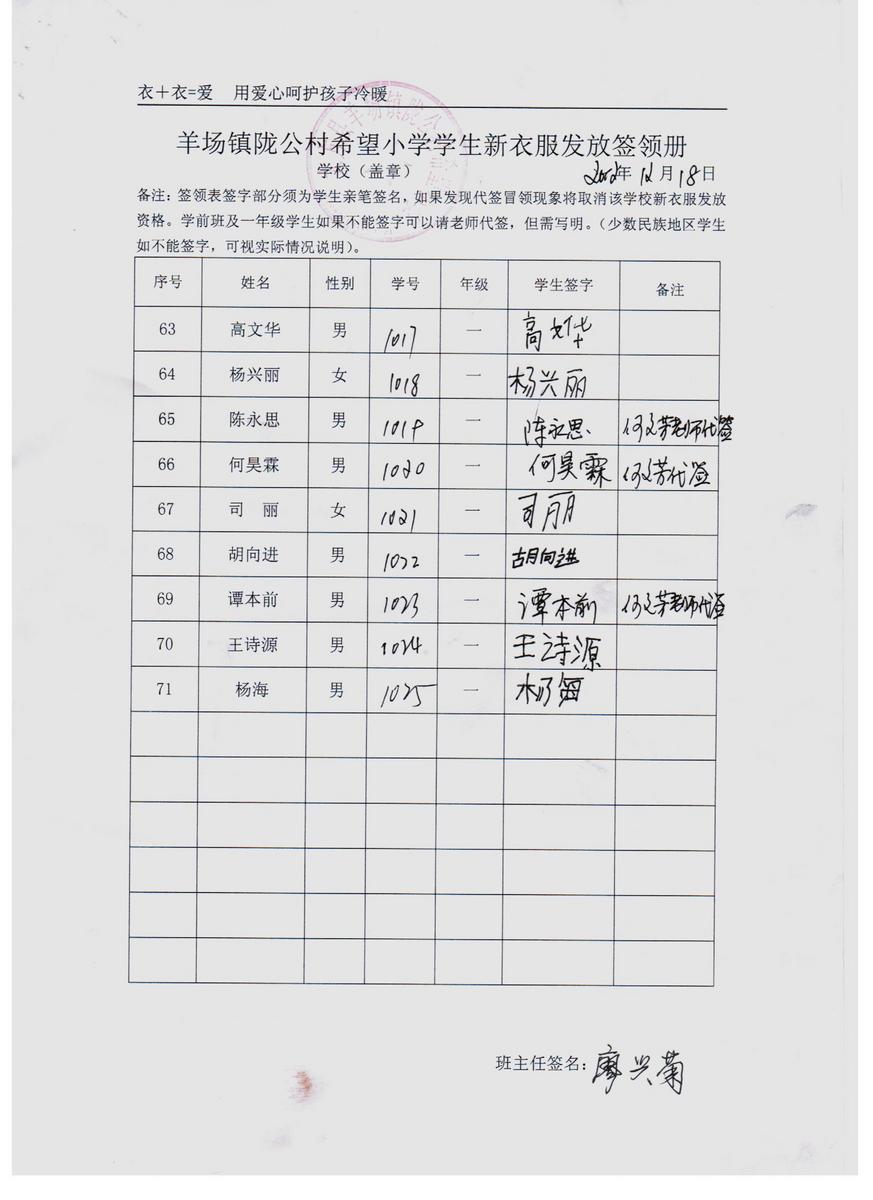 衣+衣=爱 用爱心呵护孩子冷暖
羊场镇陇公村希望小学学生新衣服发放签领册
学校（盖章） 年12月18日
备注：签领表签字部分须为学生亲笔签名，如果发现代签冒领现象将取消该学校新衣服发放
资格。学前班及一年级学生如果不能签字可以请老师代签，但需写明。（少数民族地区学生
如不能签字，可视实际情况说明）。
序号 姓名 性别 学号 年级 学生签字 备注
63 高文华 男 1017 一 高文华
64 杨兴丽 女 1018 一 杨兴丽
65 陈永思 男 1019 一 陈永思 何文芳老师代签
66 何昊霖 男 1020 一 何昊霖 何文芳代签
67 司丽 女 1021 一 司丽
68 胡向进 男 1022 一 胡向进
69 谭本前 男 1023 一 谭本前 何文芳老师代签
70 王诗源 男 1024 一 王诗源
71 杨海 男 1025 一 杨海
班主任签名：廖兴菊